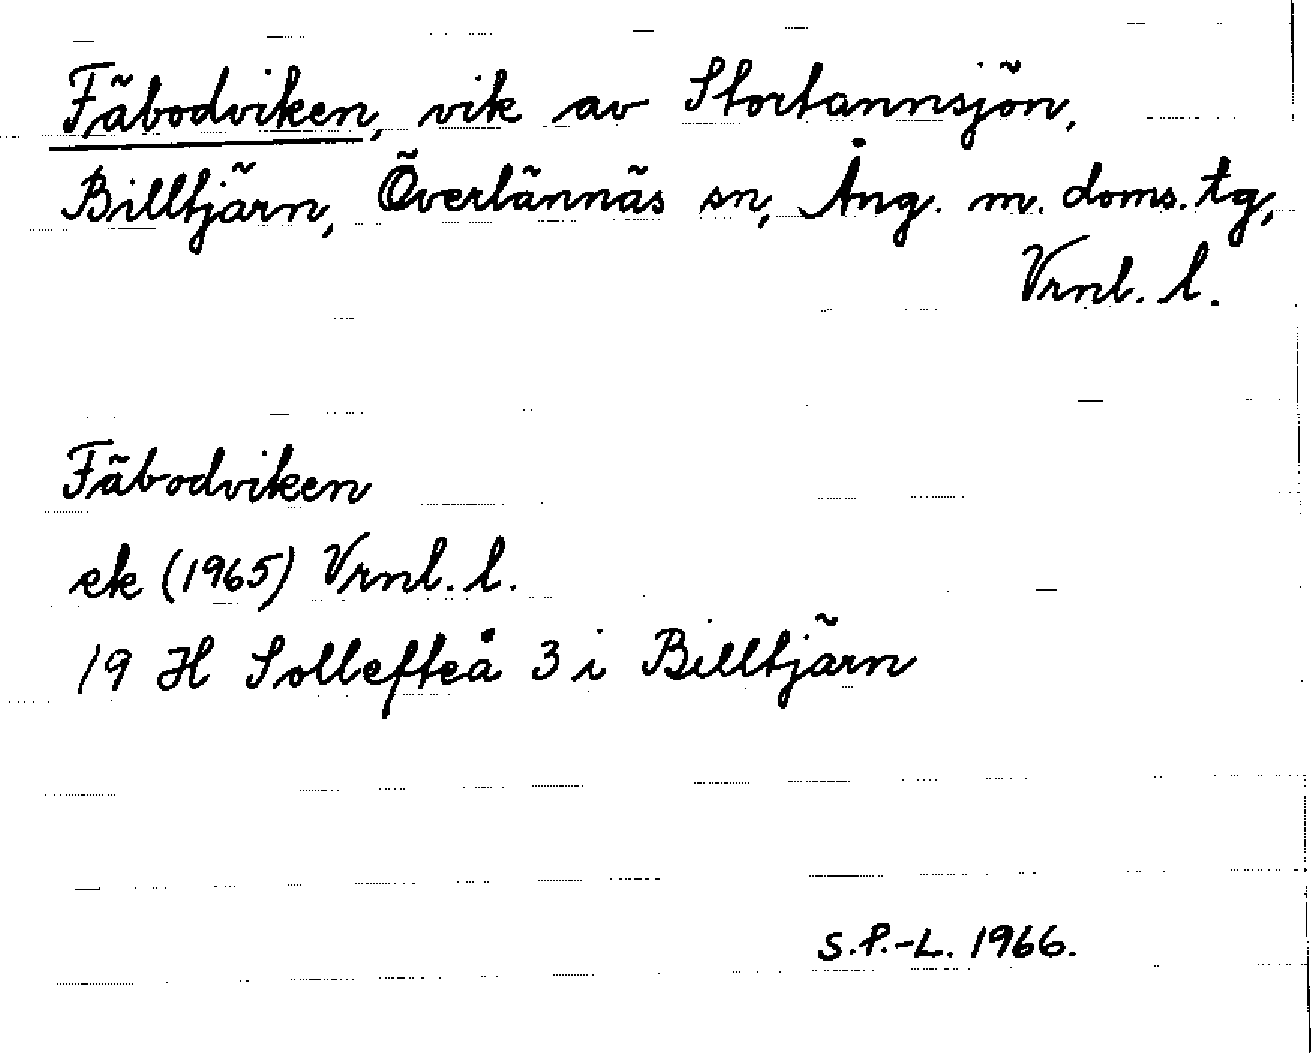 Fäbodviken, vik av Stortannsjön,
Billtjärn, Överlännäs sn, Ång. m. doms. tg,
Vrnl. l.
Fäbodviken
ek (1965) Vrnl. l.
19 H Sollefteå 3 i Billtjärn
S.P.-L. 1966.